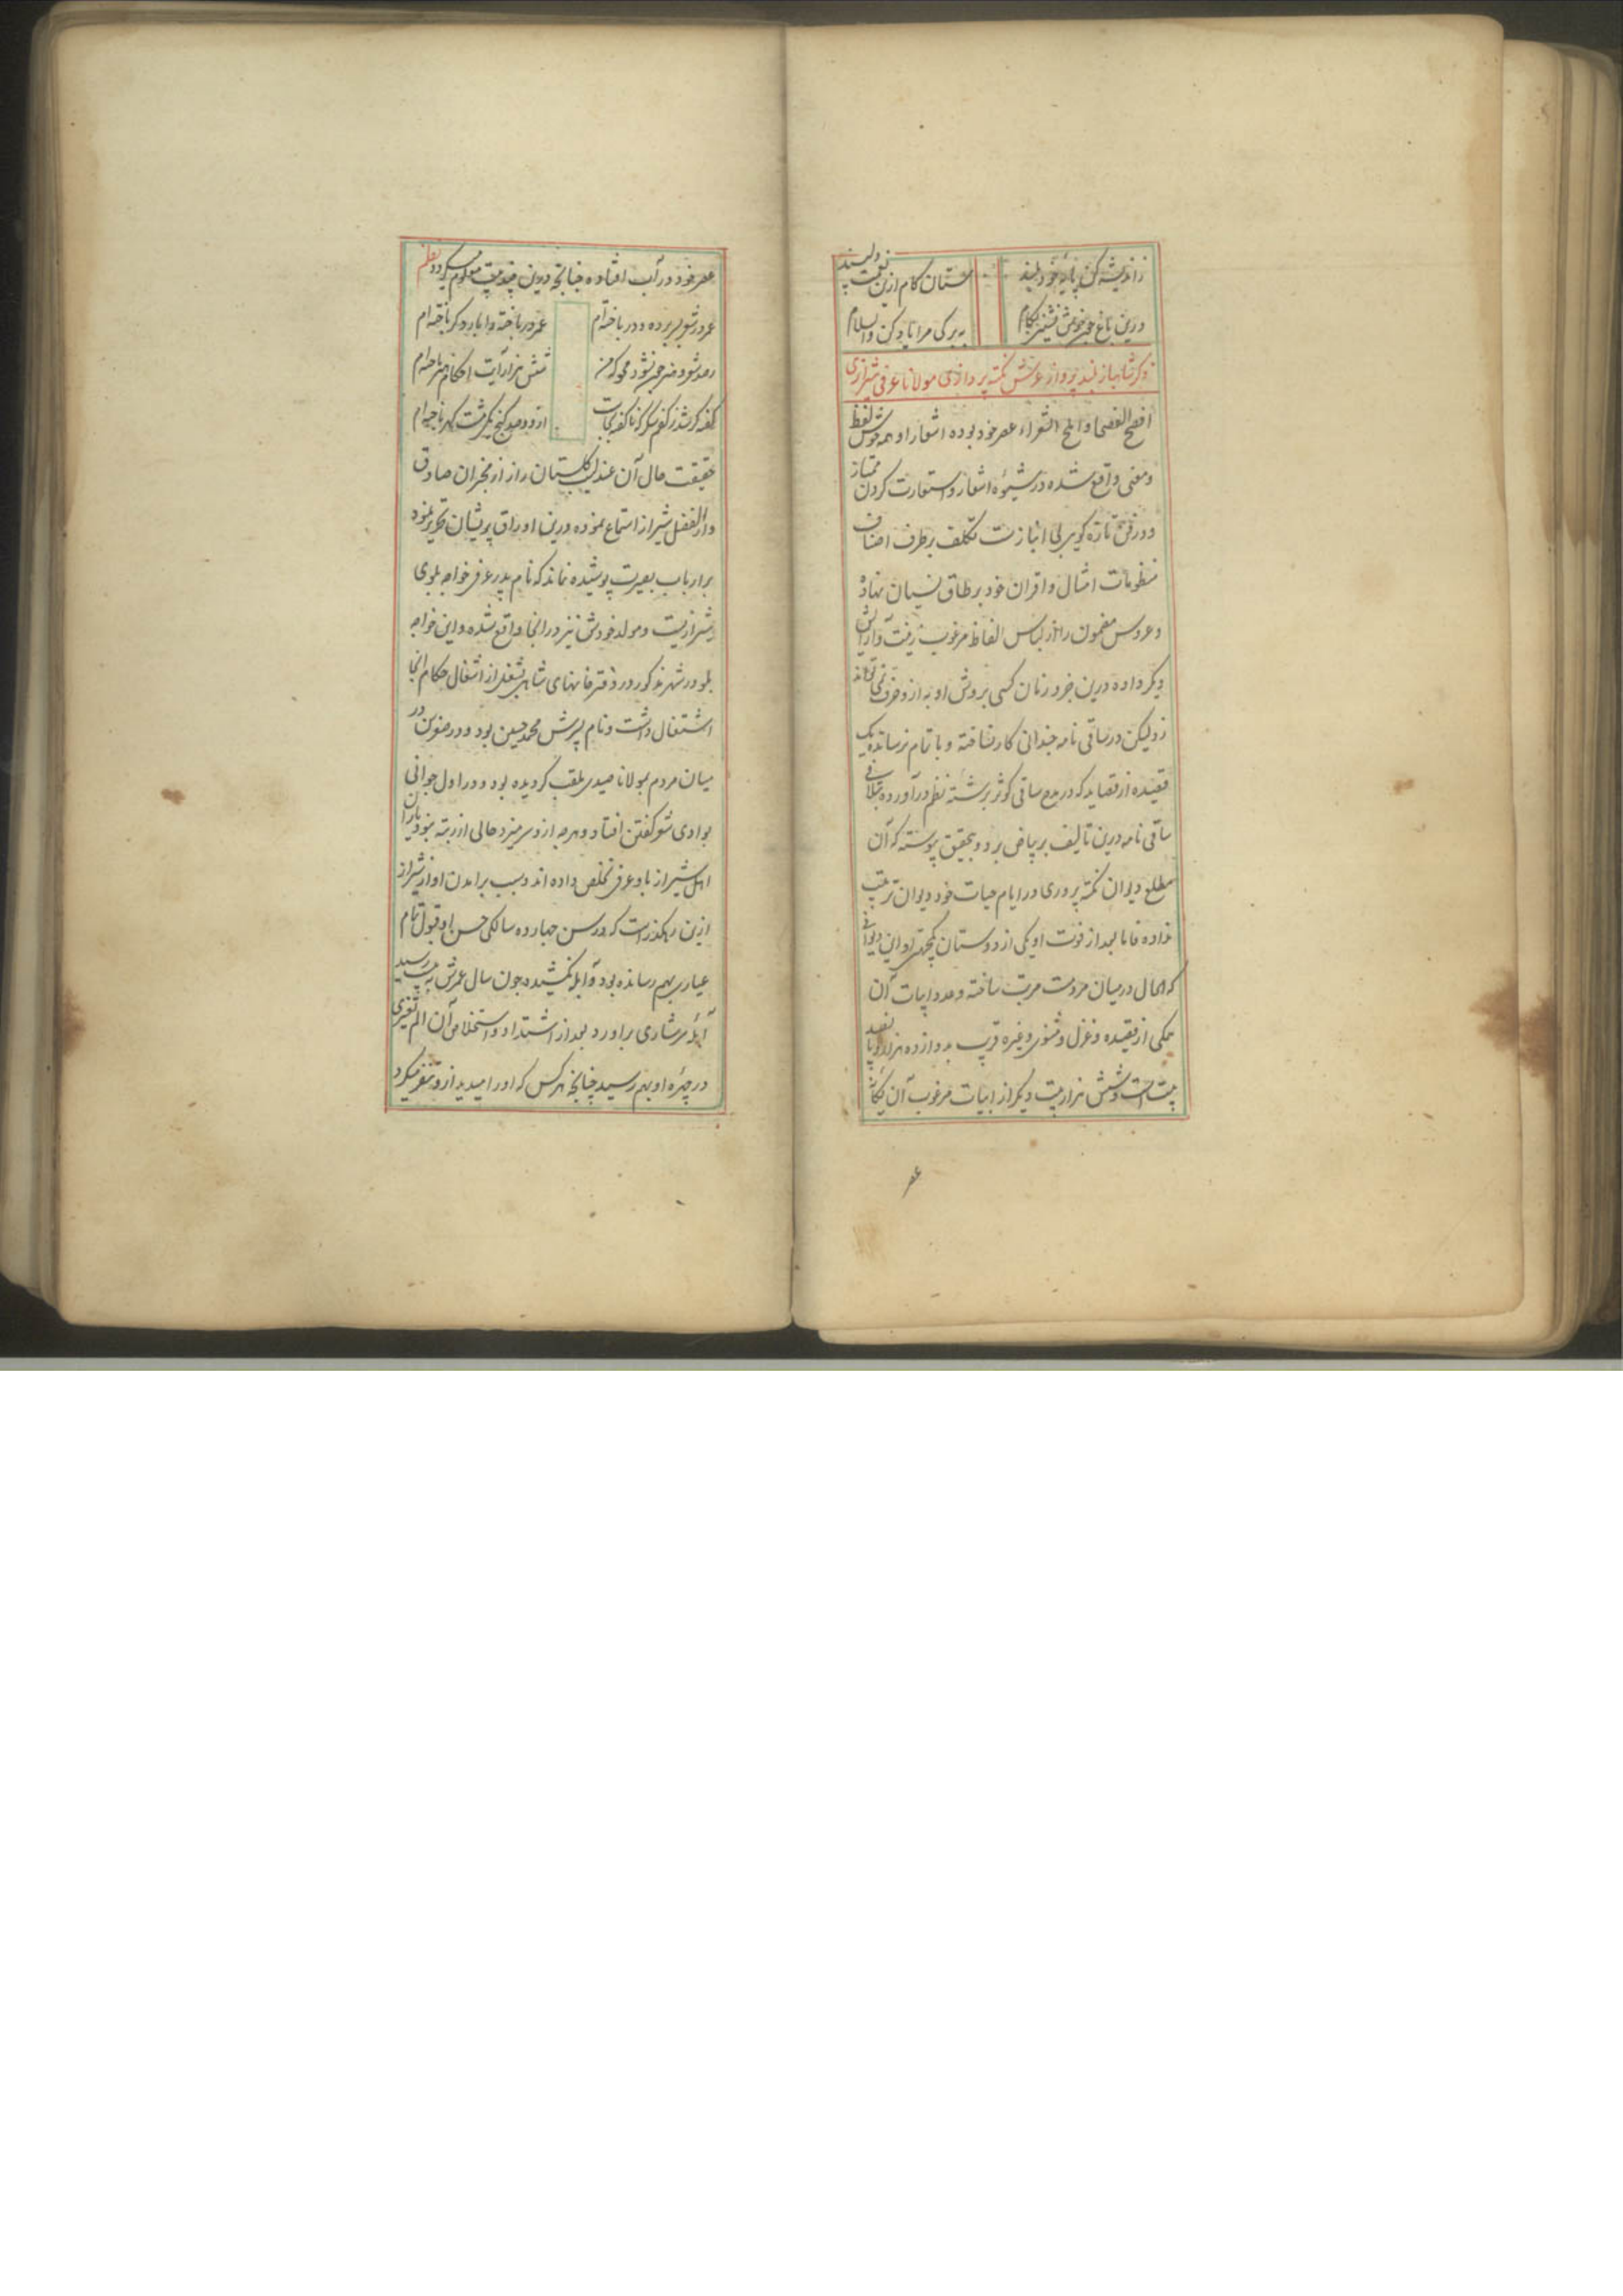 ز اندیشه کن پایه خود بلند ستان کام ازین نعمت دلپسند
درین باغ چون خوش نشینی بکام به برگی مرا یاد کن والسلام
ذکر شاهباز بلند پرواز عرش نکته پردازی مولانا عرفی شیرازی
افصح الفصحا و املح الشعراء عصر خود بوده اشعار او همه خوش لفظ
و معنی واقع شده در شیوه اشعار و استعارت کردن ممتاز
و در فن تازه گویی بی انبازست تکلف برطرف اصناف
منظومات امثال و اقران خود بر طاق نسیان نهاده
و عروس مضمون را از لباس الفاظ مرغوب زینت و آرایش
دیگر داده درین جزو زمان کسی بروش او به ازو حرف نمی تواند
زد لیکن در ساقی نامه چندانی کار نساخته و باتمام نرسانده یک
قصیده از قصاید که در مدح ساقی کوثر برشته نظم درآورده بتلافی
ساقی نامه درین تالیف بر بیاض برد و بتحقیق پیوسته که آن
مطلع دیوان نکته پروری در ایام حیات خود دیوان ترتیب
نداده فاما بعد از فوت او یکی از دوستان یکجهتی او این دیوانی
که الحال در میان مردمست مرتب ساخته و عدد ابیات آن
همگی از قصیده و غزل و مثنوی و غیره قریب بدوازده هزار و پانصد
بیت است و شش هزار بیت دیگر از ابیات مرغوب آن یگانه
عصر
عصر خود در آب افتاده چنانچه درین چند بیت معلوم میگردد نظم
عمر در شعر بسر برده و در باخته ام عمر در باخته را بار دگر باخته ام
رصد شعر و هنر چون نشود محو که من شش هزار آیت احکام هنر باخته ام
گفته گر شد ز کفم شکر که ناگفته بجاست از دو صد گنج یکی مشت گهر باخته ام
حقیقت حال آن عندلیب گلستان راز از مخبران صادق
دارالفضل شیراز استماع نموده درین اوراق پریشان تحریر نمود
بر ارباب بصیرت پوشیده نماند که نام پدر عرفی خواجه بلوی
شیرازیست و مولد خودش نیز در انجا واقع شده و این خواجه
بلو در شهر مذکور در دفترخانهای شاهی بشغلی از اشغال حکام انجا
اشتغال داشت و نام پسرش محمد حسین بود و در صغر سن در
میان مردم بمولانا صیدی ملقب گردیده بود و در اول جوانی
بوادی شعر گفتن افتاد و هرچه ازو سر میزد خالی از رتبه نبود یاران
اهل شیراز باو عرفی تخلص داده اند و سبب برامدن او از شیراز
ازین رهگذرست که در سن چهارده سالگی حسن او قبول تمام
عیاری بهم رسانده بود و آبله نکشیده چون سال عمرش به بیست رسید
آبله سرشاری براورد بعد از اشتداد و استخلاص آن الم تغیری
در چهره او بهم رسید چنانچه هر کس که او را میدید ازو تنفر میکرد